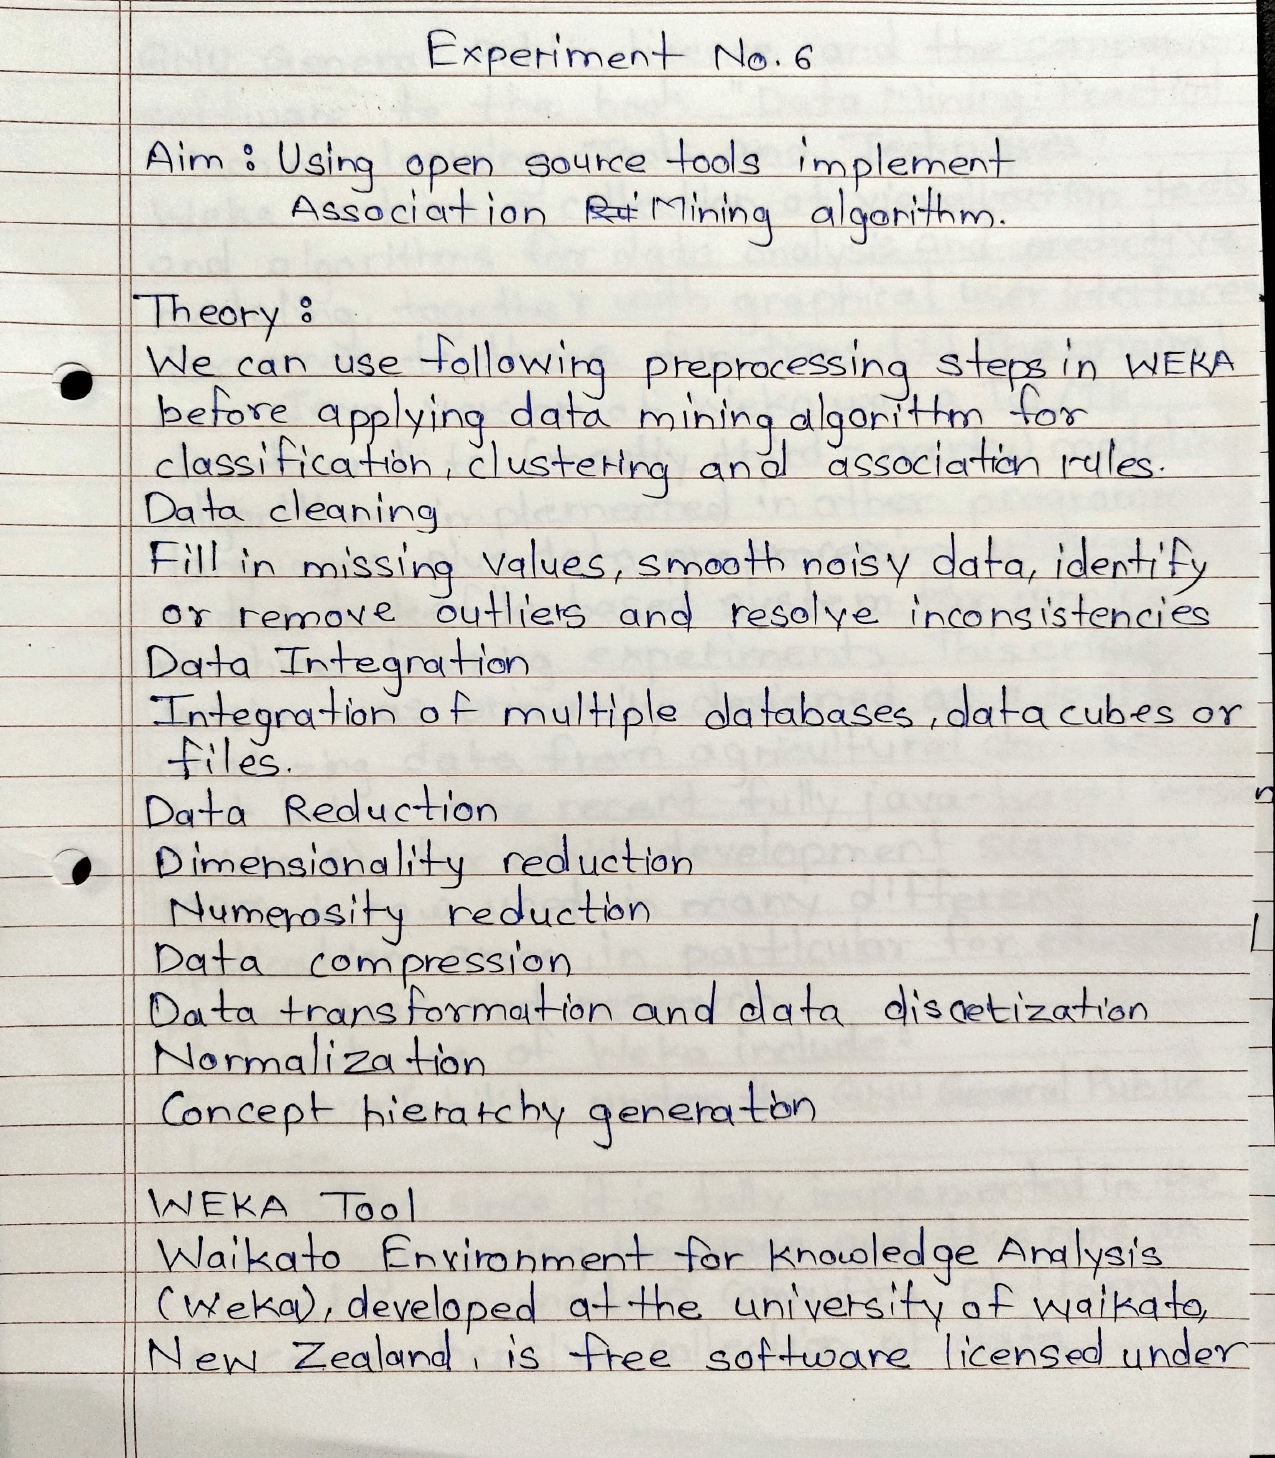 Experiment No. 6
Aim : Using open source tools implement
Association Mining algorithm.
Theory :
We can use following preprocessing steps in WEKA
before applying data mining algorithm for
classification, clustering and association rules.
Data cleaning
Fill in missing values, smooth noisy data, identify
or remove outliers and resolve inconsistencies
Data Integration
Integration of multiple databases, data cubes or
files.
Data Reduction
Dimensionality reduction
Numerosity reduction
Data compression
Data transformation and data discetization
Normalization
Concept hierarchy generation
WEKA Tool
Waikato Environment for knowledge Analysis
(Weka), developed at the university of waikato,
New Zealand, is free software licensed under